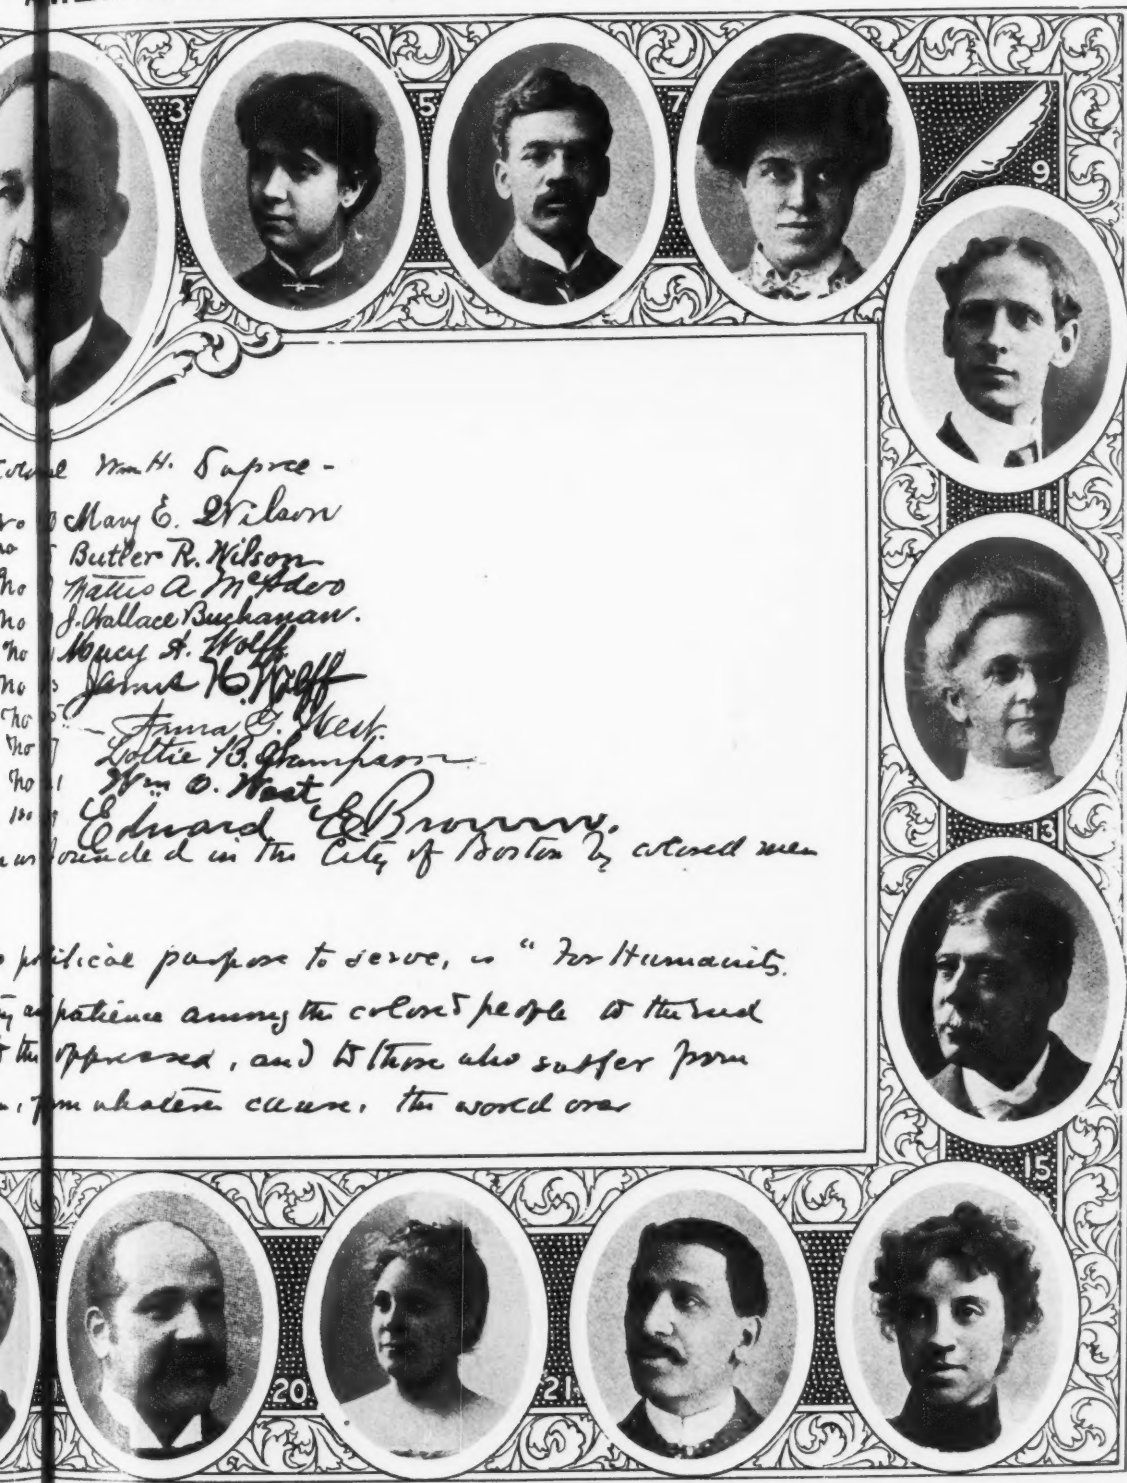 3
5
7
9
11
13
15
20
21
Wm H. Dupree -
Mary E. Wilson
Butler R. Wilson
No Mattie A McAdoo
No J. Wallace Buchanan.
No H. Wolff
No James H. Wolff
No Anna G. West.
No Lottie B.
No Wm O. West
Edward E. Brown.
in the City of Boston by colored men
purpose to serve, is "For Humanity.
among the colored people to the
the oppressed, and to those who suffer from
from whatever cause, the world over